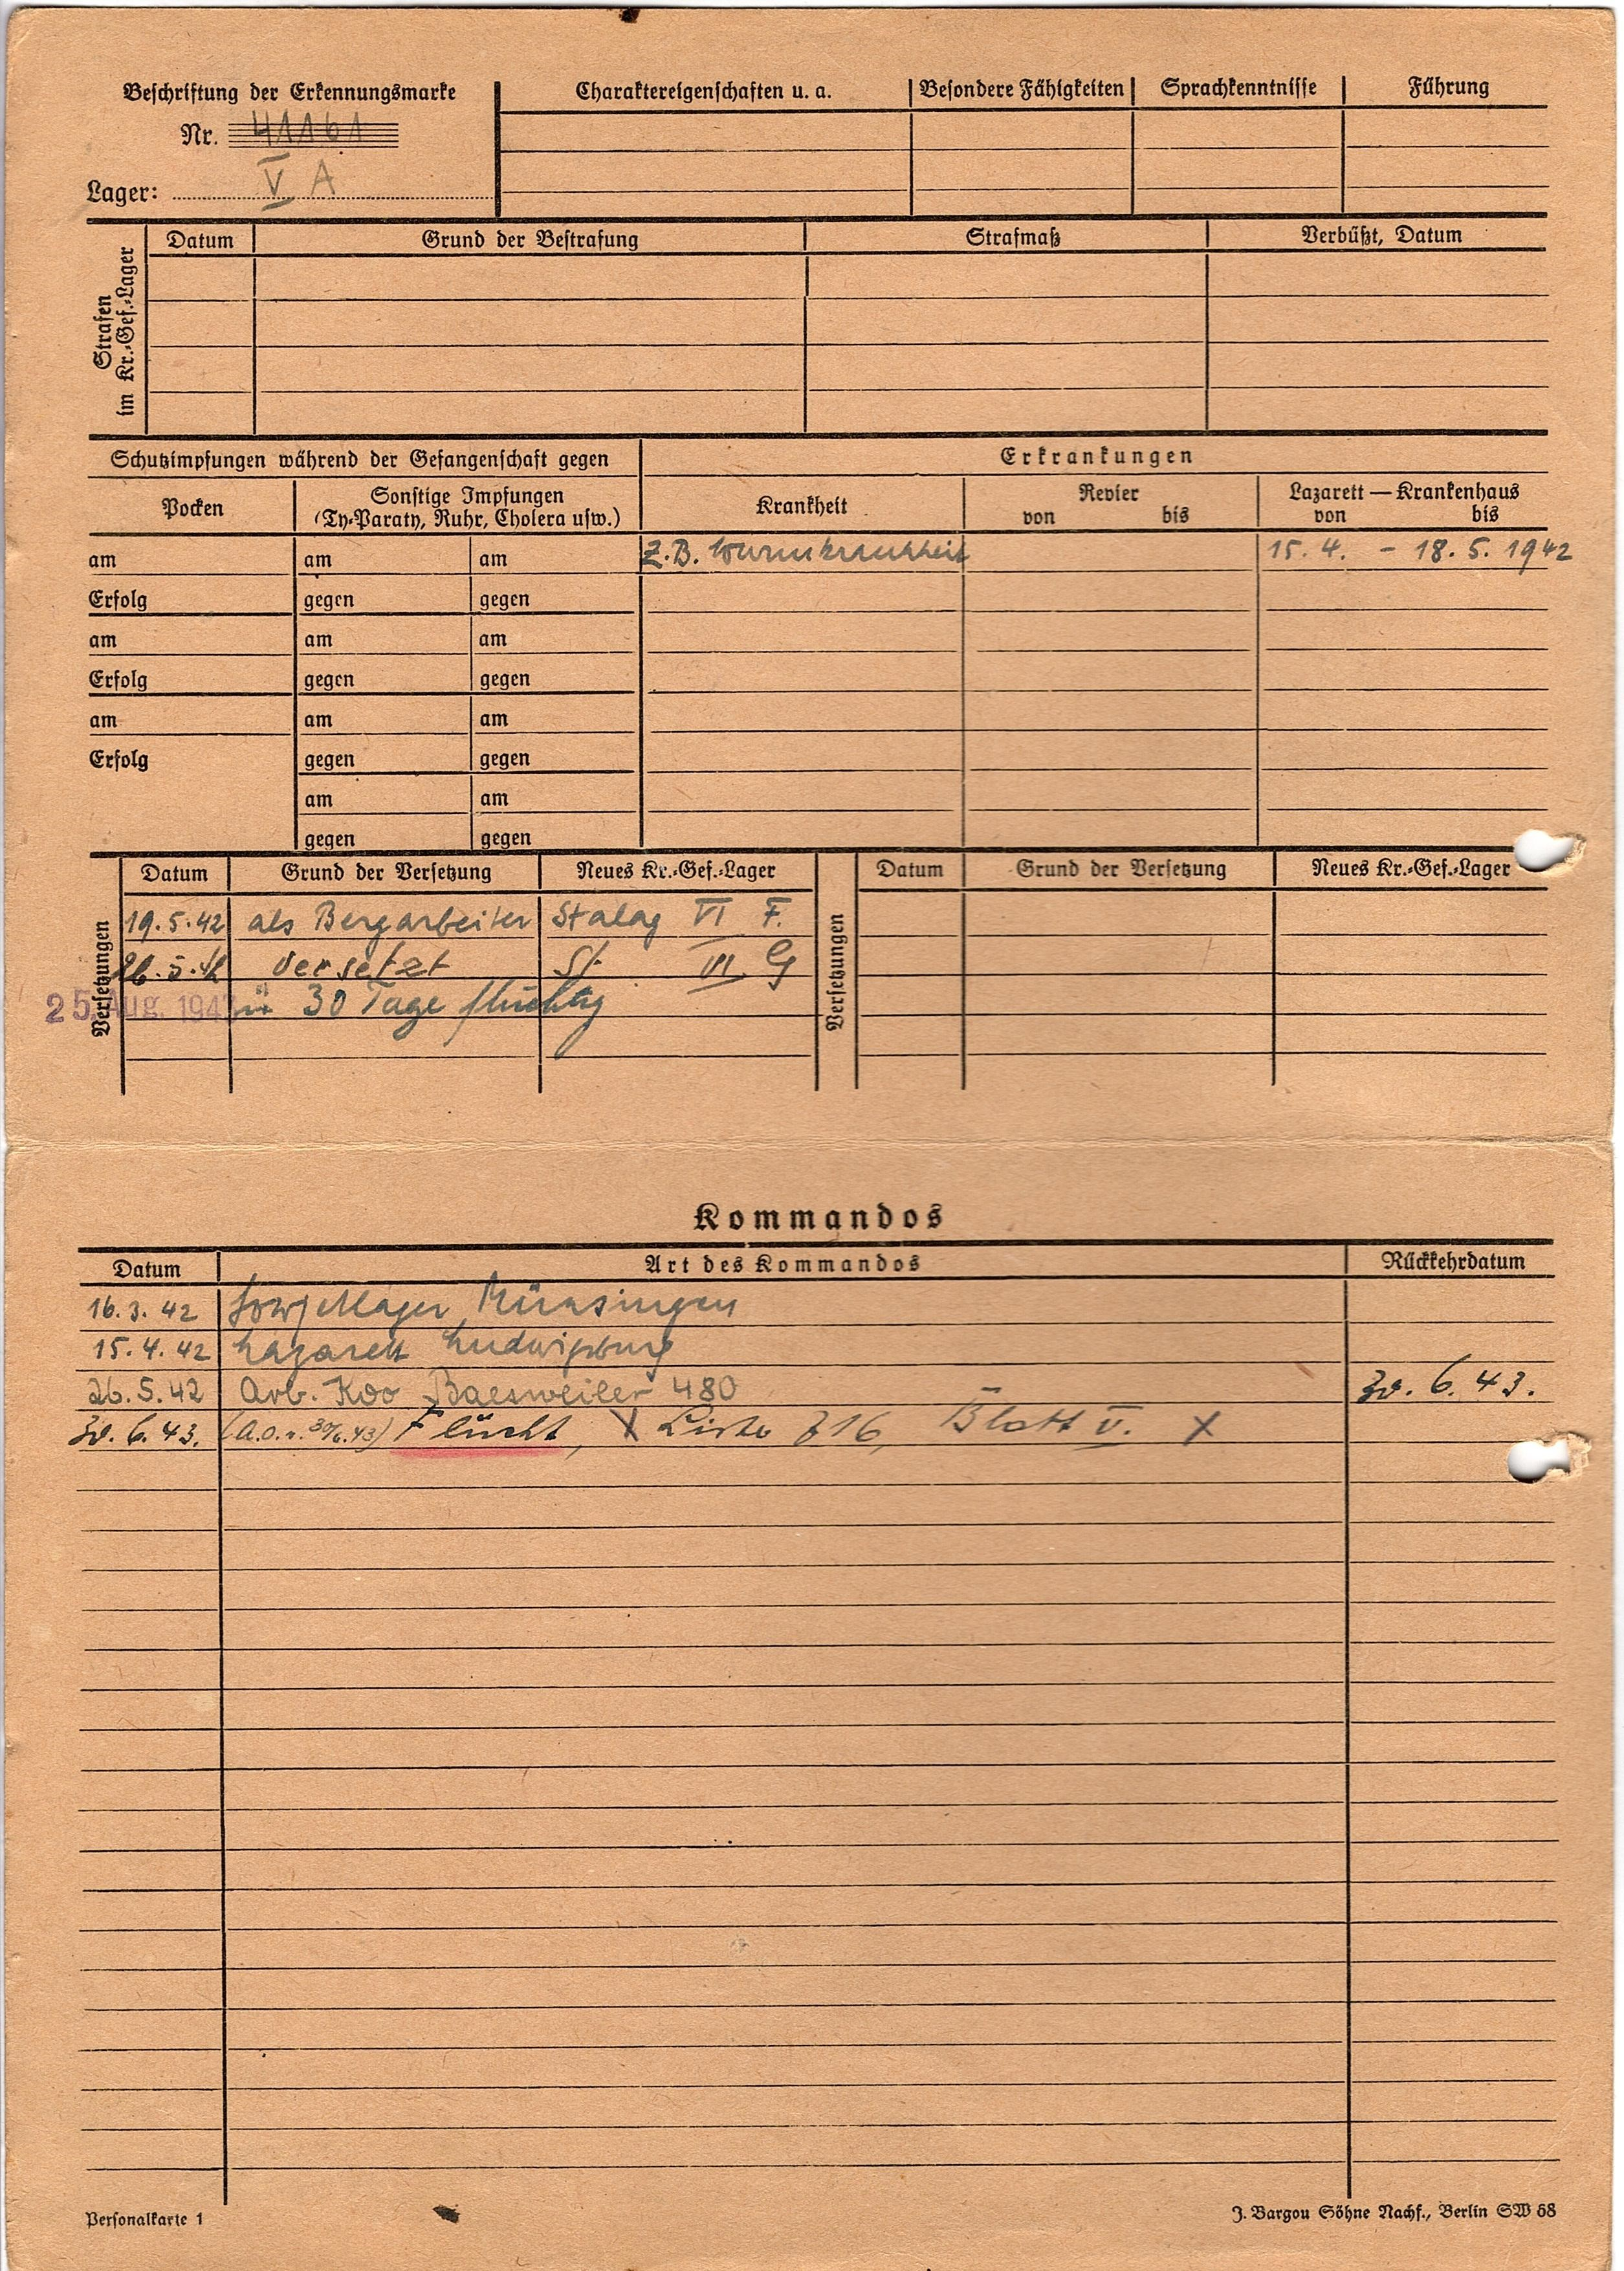 Beschriftung der Erkennungsmarke
Nr. 41161
Lager: V A
Charaktereigenschaften u. a.
Besondere Fähigkeiten
Sprachkenntnisse
Führung
Strafen
im Kr.-Gef.-Lager
Datum
Grund der Bestrafung
Strafmaß
Verbüßt, Datum
Schutzimpfungen während der Gefangenschaft gegen
Pocken
Sonstige Impfungen
(Ty-Paraty, Ruhr, Cholera usw.)
Erkrankungen
Krankheit
Revier
von bis
Lazarett — Krankenhaus
von bis
am am am Z.B. Wurmkrankheit 15. 4. - 18. 5. 1942
Erfolg gegen gegen
am am am
Erfolg gegen gegen
am am am
Erfolg gegen gegen
am am
gegen gegen
Versetzungen
Datum Grund der Versetzung Neues Kr.-Gef.-Lager
19.5.42 als Bergarbeiter Stalag VI F.
26.5.42 versetzt St. VI G
25. Aug. 1943 30 Tage flüchtig
Versetzungen
Datum Grund der Versetzung Neues Kr.-Gef.-Lager
Kommandos
Datum Art des Kommandos Rückkehrdatum
16.3.42 Münsingen
15.4.42 Lazarett Ludwigsburg
26.5.42 Arb. Kdo Baesweiler 480 30.6.43.
30.6.43. (A.O.v. 30/6.43) Flücht, X Liste 716, Blatt V. X
Personalkarte 1
J. Bargou Söhne Nachf., Berlin SW 68